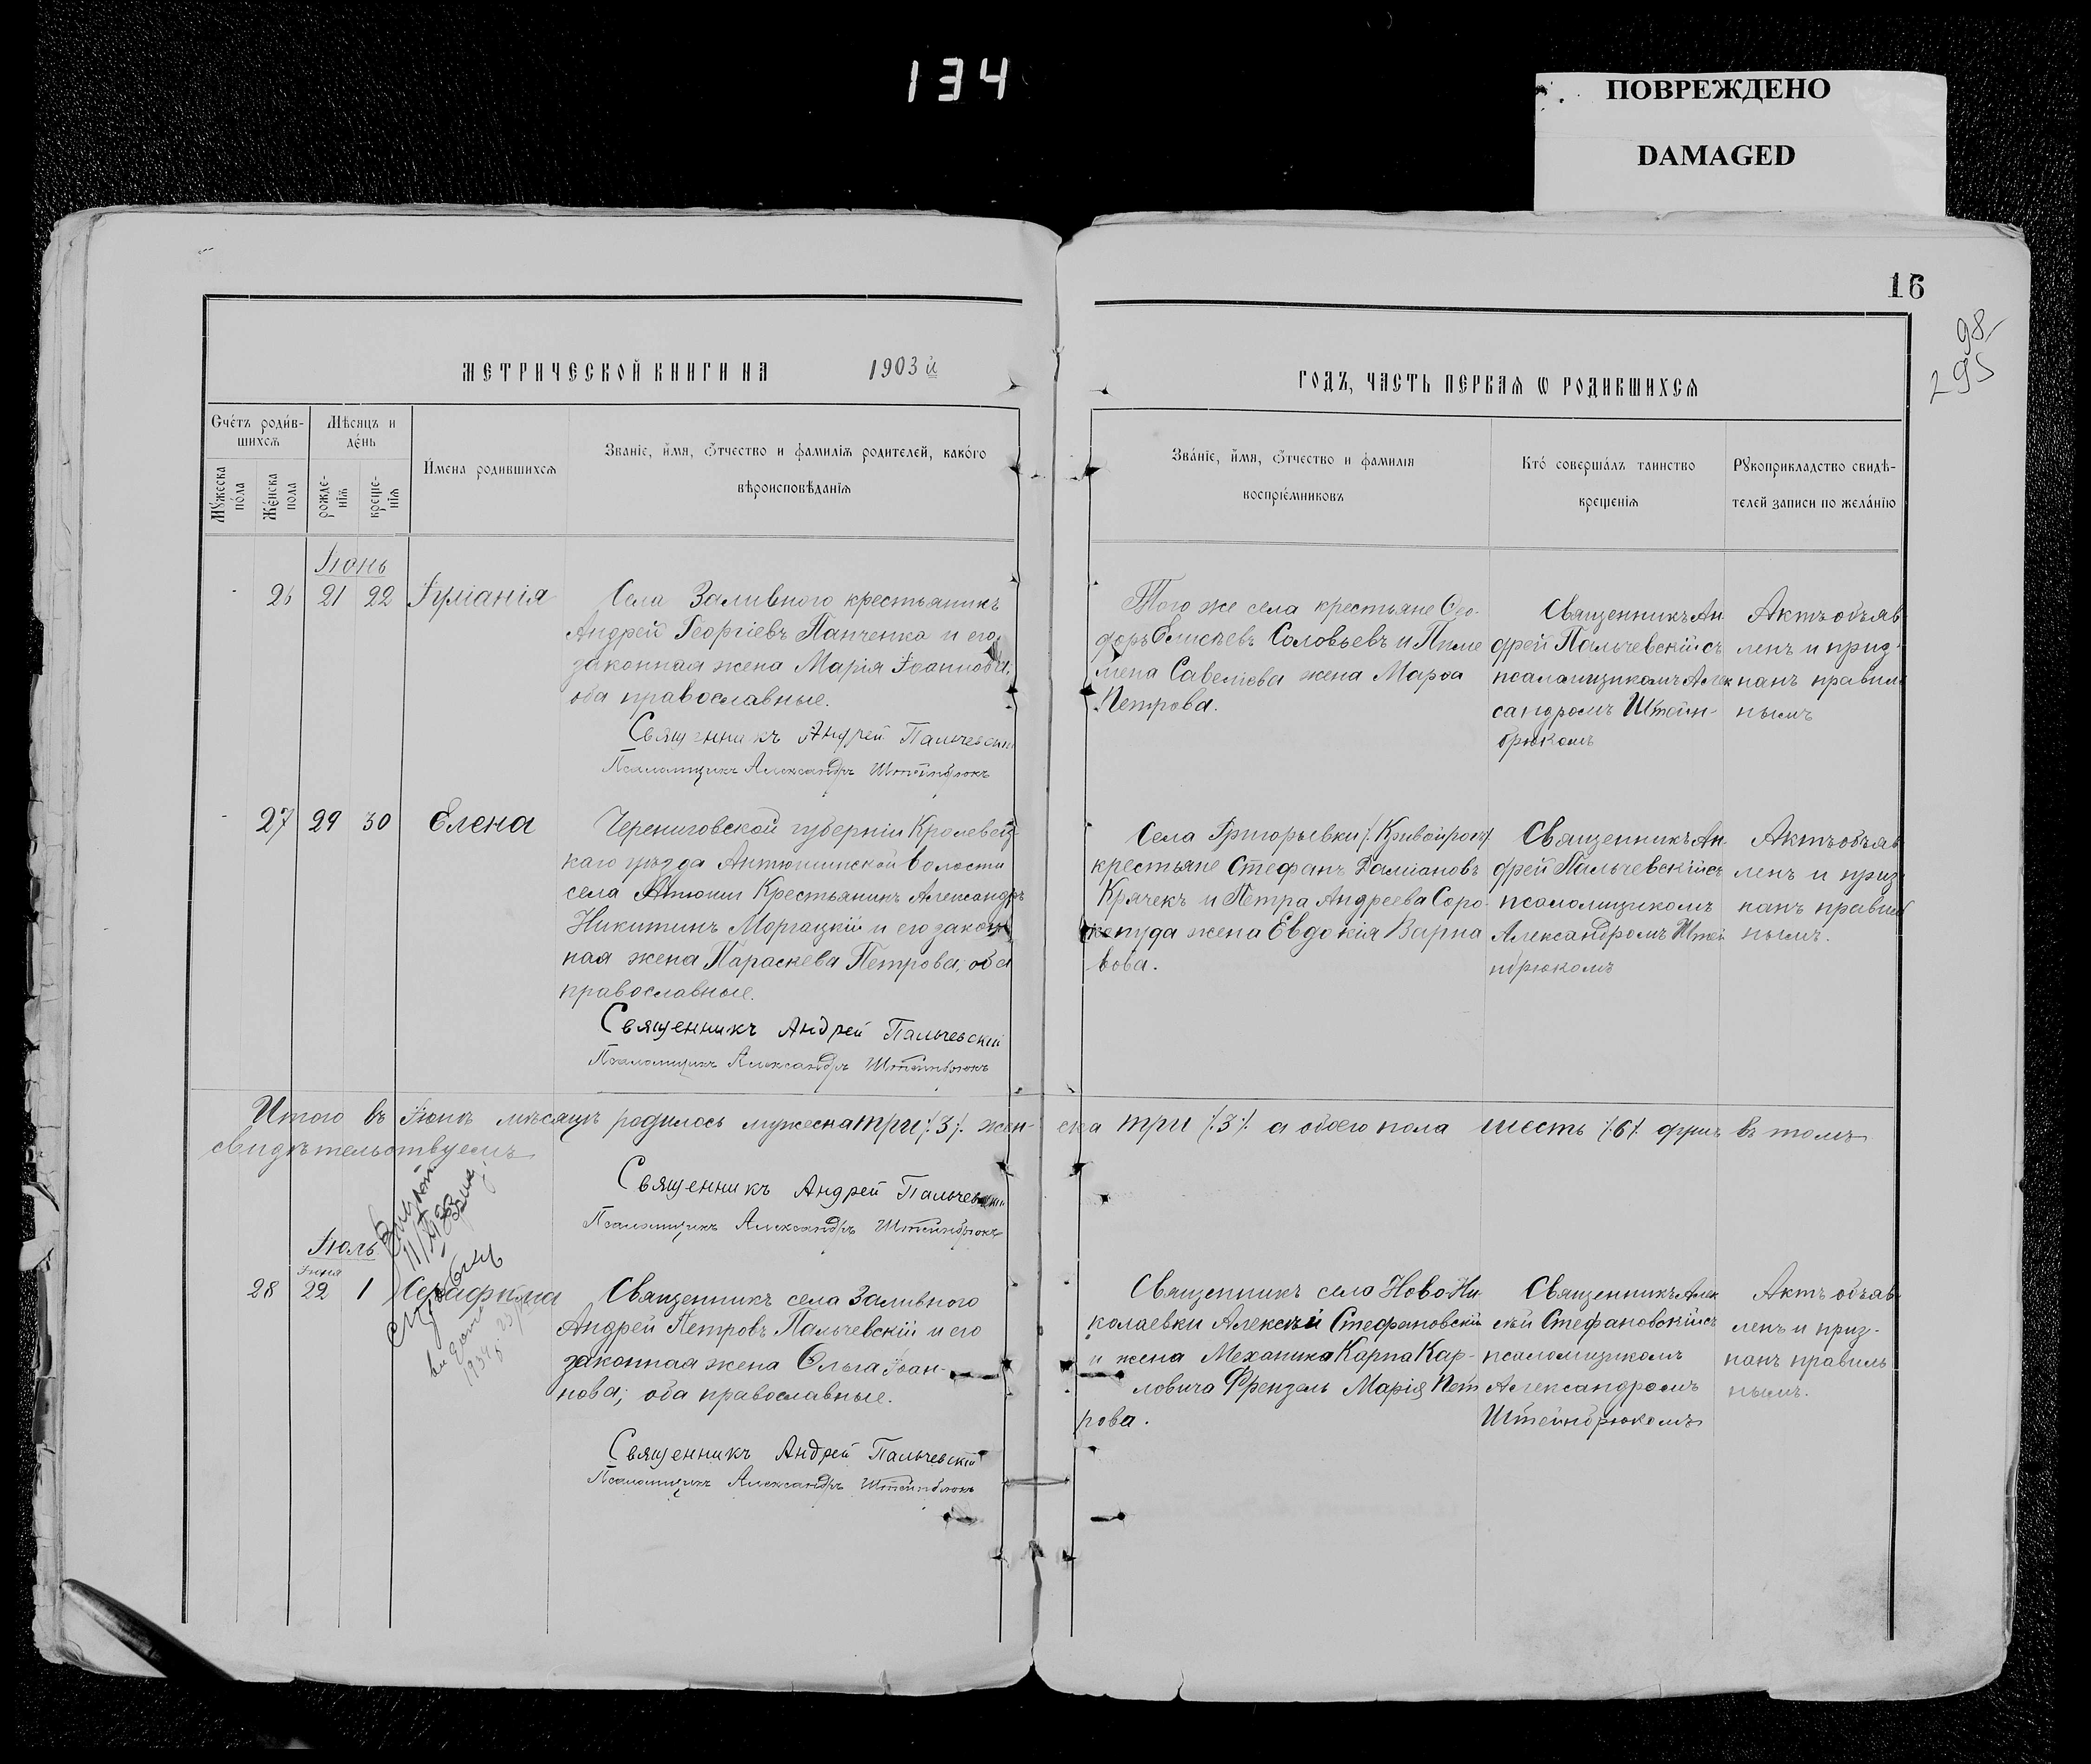 134
ПОВРЕЖДЕНО
DAMAGED
16
98
295
МЕТРИЧЕСКОЙ КНИГИ НА 1903 й
ГОДЪ, ЧАСТЬ ПЕРВАЯ Ѡ РОДИВШИХСЯ
Счетъ родив-
шихся
Мѣсяцъ и
день
Мужеска
пола
Женска
пола
рожде-
нія
креще-
нія
Имена родившихся
Званіе, имя, отчество и фамилія родителей, какого
вѣроисповѣданія
Званіе, имя, отчество и фамилія
воспріемниковъ
Кто совершалъ таинство
крещенія
Рукоприкладство свидѣ-
телей записи по желанію
Іюнь
26 21 22 Іуліанія
Села Заливного крестьянинъ
Андрей Георгіевъ Панченко и его
законная жена Марія Іоаннова;
оба православные.
Священникъ Андрей Пальчевскій
Псаломщикъ Александръ Штейнбрюкъ
Того же села крестьяне Ѳео-
доръ Елисѣевъ Соловьевъ и Пиме
мена Савеліева жена Марѳа
Петрова.
Священникъ Ан
дрей Пальчевскій съ
псаломщикомъ Алек
сандромъ Штейн-
брюкомъ
Актъ объяв
ленъ и приз-
нанъ правиль
нымъ
27 29 30 Елена
Черниговской губерніи Кролевец-
каго уѣзда Антюшинской волости
села Крестьянинъ Александръ
Никитинъ Моргацкій и его закон
ная жена Параскева Петрова; оба
православные.
Священникъ Андрей Пальчевскій
Псаломщикъ Александръ Штейнбрюкъ
Села Григорьевки /. Кривой рогъ ./
крестьяне Стефанъ Даміановъ
Крячекъ и Петра Андреева Соро
копуда жена Евдокія Варла
вова.
Священникъ Ан
дрей Пальчевскій съ
псаломщикомъ
Александромъ Штей
нбрюкомъ
Актъ объяв
ленъ и приз-
нанъ правиль
нымъ.
Итого въ Іюнѣ мѣсяцѣ родилось мужеска три /.3./. жен- ска три /.3./ а обоего пола шесть /.6./. душъ въ томъ
свидѣтельствуемъ
Священникъ Андрей Пальчевскій
Псаломщикъ Александръ Штейнбрюкъ
Іюль
Іюня
28 22 1 Серафима
Священникъ села Заливного
Андрей Петровъ Пальчевскій и его
законная жена Ольга Іоан-
нова; оба православные.
Священникъ Андрей Пальчевскій
Псаломщикъ Александръ Штейнбрюкъ
Священникъ села Ново-Ни
колаевки Алексѣй Стефановскій
и жена Механика Карпа Кар-
ловича Френзель Марія Пет
рова.
Священникъ Алек
сѣй Стефановскій съ
псаломщикомъ
Александромъ
Штейнбрюкомъ
Актъ объяв
ленъ и приз-
нанъ правиль
нымъ.